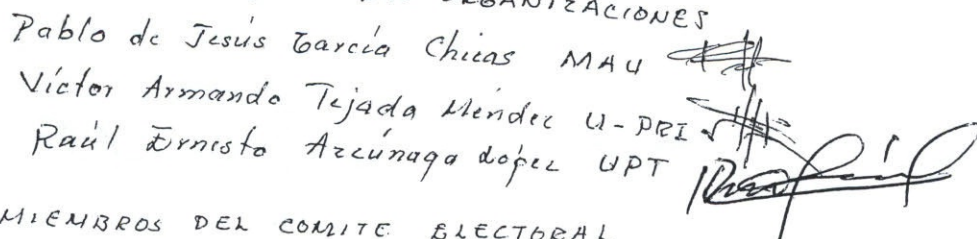 ORGANIZACIONES
Pablo de Jesús García Chicas MAU
Víctor Armando Tejada Méndez U-PRI
Raúl Ernesto Azcúnaga López UPT
MIEMBROS DEL COMITE ELECTORAL